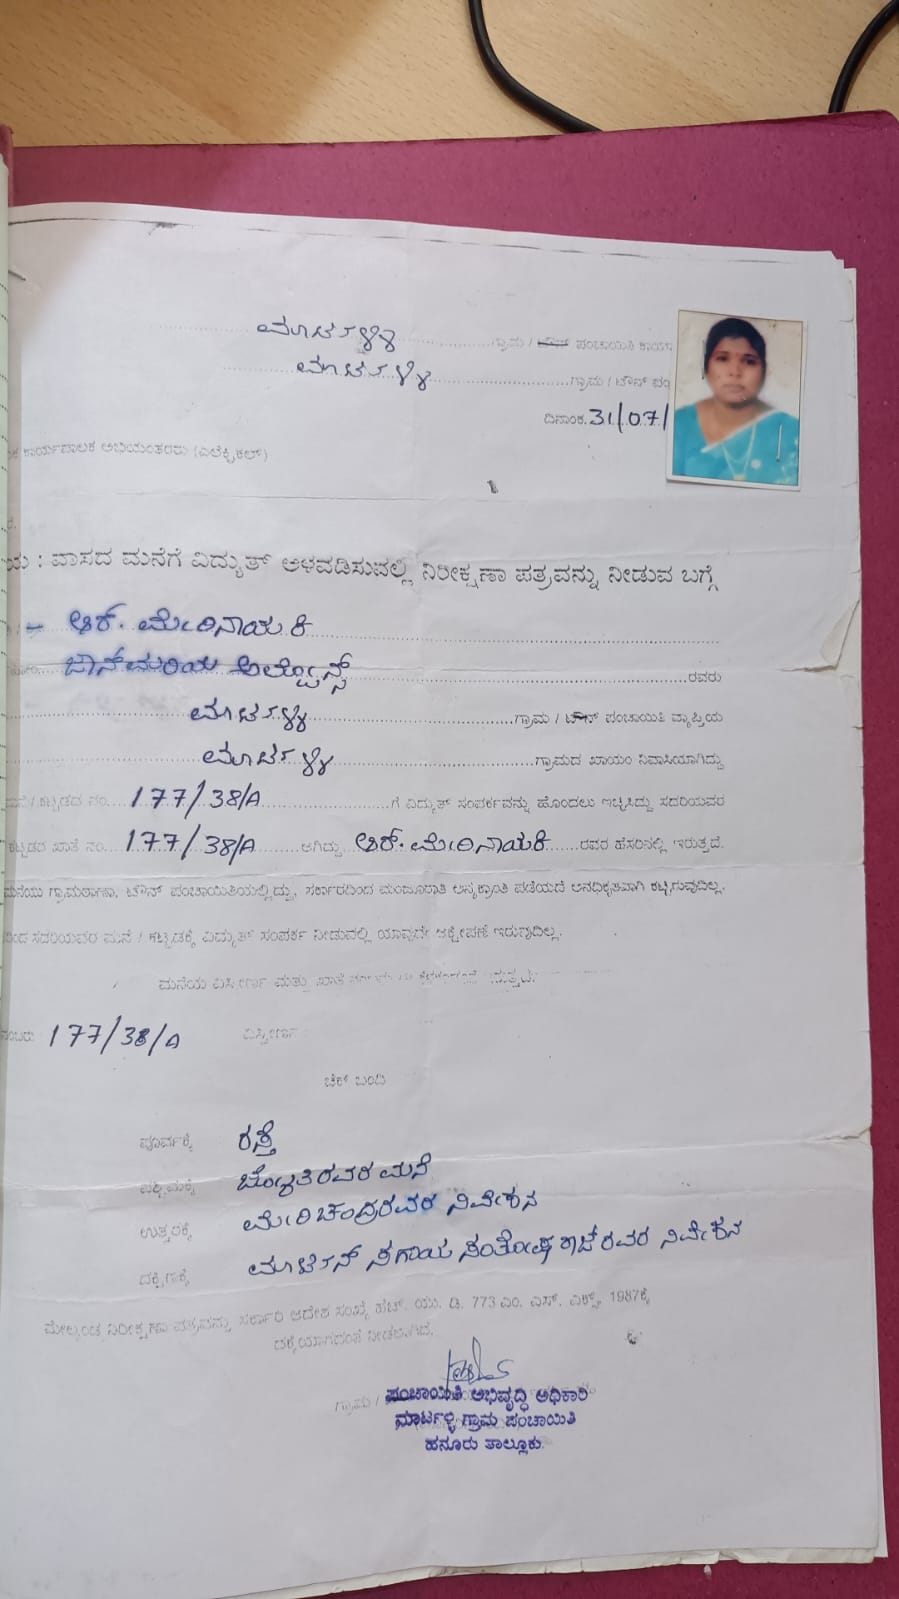 ಮಾರ್ಟಳ್ಳಿ ಗ್ರಾಮ / ಟೌನ್ ಪಂಚಾಯಿತಿ ಕಾರ್ಯಾ
ಮಾರ್ಟಳ್ಳಿ ಗ್ರಾಮ / ಟೌನ್ ಪಂ
ದಿನಾಂಕ. 31/07/
ಕಾರ್ಯಪಾಲಕ ಅಭಿಯಂತರರು (ಎಲೆಕ್ಟ್ರಿಕಲ್)
ಯ : ವಾಸದ ಮನೆಗೆ ವಿದ್ಯುತ್ ಅಳವಡಿಸುವಲ್ಲಿ ನಿರೀಕ್ಷಣಾ ಪತ್ರವನ್ನು ನೀಡುವ ಬಗ್ಗೆ
ಆರ್. ಮೇರಿನಾಯಕಿ
ಜಾನ್ ಮರಿಯ ಅಲ್ಫೋನ್ಸ್ ರವರು
ಮಾರ್ಟಳ್ಳಿ ಗ್ರಾಮ / ಟೌನ್ ಪಂಚಾಯಿತಿ ವ್ಯಾಪ್ತಿಯ
ಮಾರ್ಟಳ್ಳಿ ಗ್ರಾಮದ ಖಾಯಂ ನಿವಾಸಿಯಾಗಿದ್ದು
ಮನೆ / ಕಟ್ಟಡದ ನಂ. 177/38/A ಗೆ ವಿದ್ಯುತ್ ಸಂಪರ್ಕವನ್ನು ಹೊಂದಲು ಇಚ್ಛಿಸಿದ್ದು ಸದರಿಯವರ
ಕಟ್ಟಡದ ಖಾತೆ ನಂ. 177/38/A ಆಗಿದ್ದು ಆರ್. ಮೇರಿನಾಯಕಿ ರವರ ಹೆಸರಿನಲ್ಲಿ ಇರುತ್ತದೆ.
ಮನೆಯು ಗ್ರಾಮಠಾಣಾ, ಟೌನ್ ಪಂಚಾಯಿತಿಯಲ್ಲಿದ್ದು, ಸರ್ಕಾರದಿಂದ ಮಂಜೂರಾತಿ ಅನ್ಯಕ್ರಾಂತಿ ಪಡೆಯದೆ ಅನಧಿಕೃತವಾಗಿ ಕಟ್ಟಿರುವುದಿಲ್ಲ.
ಸದರಿಯವರ ಮನೆ / ಕಟ್ಟಡಕ್ಕೆ ವಿದ್ಯುತ್ ಸಂಪರ್ಕ ನೀಡುವಲ್ಲಿ ಯಾವುದೇ ಆಕ್ಷೇಪಣೆ ಇರುವುದಿಲ್ಲ.
ಮನೆಯ ವಿಸ್ತೀರ್ಣ ಮತ್ತು ಖಾತೆ
ನಂಬರು 177/38/A ವಿಸ್ತೀರ್ಣ
ಚೆಕ್ ಬಂದಿ
ಪೂರ್ವಕ್ಕೆ ರಸ್ತೆ
ಪಶ್ಚಿಮಕ್ಕೆ ಜ್ಯೋತಿರವರ ಮನೆ
ಉತ್ತರಕ್ಕೆ ಮೇರಿಚಂದ್ರರವರ ನಿವೇಶನ
ದಕ್ಷಿಣಕ್ಕೆ ಮಾರ್ಟಿನ್ ಸಗಾಯ ಸಂತೋಷ್ ರಾಜ್ ರವರ ನಿವೇಶನ
ಮೇಲ್ಕಂಡ ನಿರೀಕ್ಷಣಾ ಪತ್ರವನ್ನು ಸರ್ಕಾರಿ ಆದೇಶ ಸಂಖ್ಯೆ ಹೆಚ್. ಯು. ಡಿ. 773 ಎಂ. ಎಸ್. ಎಕ್ಸ್. 1987ಕ್ಕೆ
ನೀಡಲಾಗಿದೆ.
ಗ್ರಾಮ /
ಪಂಚಾಯಿತಿ ಅಭಿವೃದ್ಧಿ ಅಧಿಕಾರಿ
ಮಾರ್ಟಳ್ಳಿ ಗ್ರಾಮ ಪಂಚಾಯಿತಿ
ಹನೂರು ತಾಲ್ಲೂಕು.